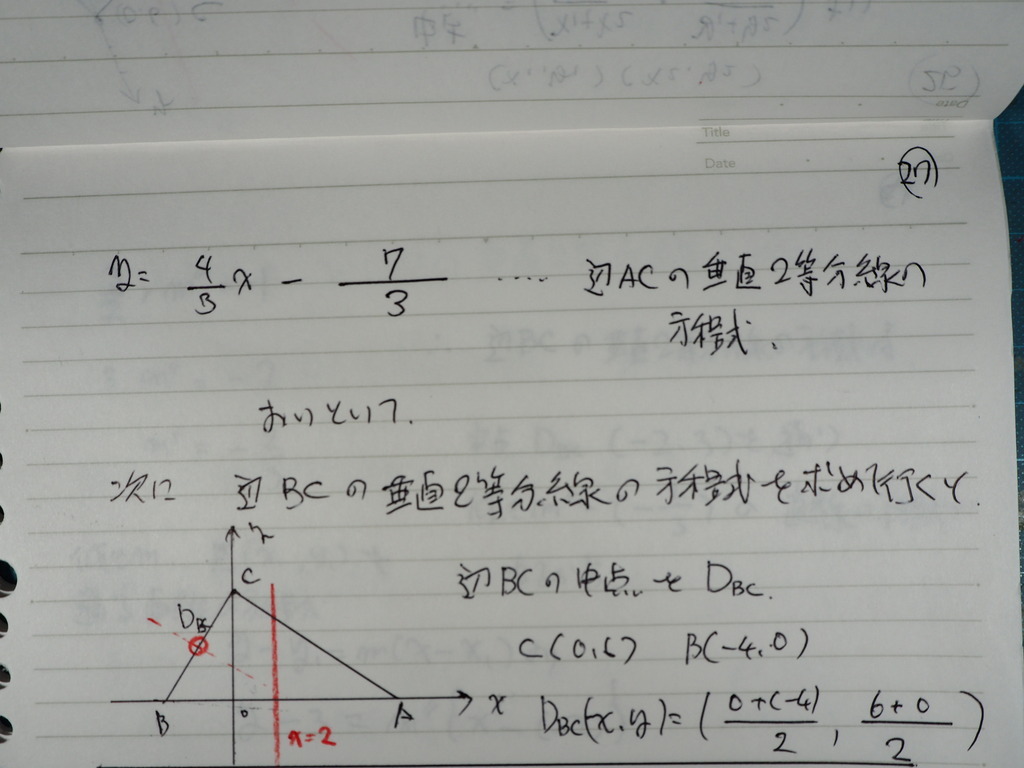 Title
Date
27
y = 4/3 x - 7/3 ‥‥ 辺ACの垂直2等分線の
方程式、
おいといて.
次に 辺BCの垂直2等分線の方程式を求めて行くと.
辺BCの中点を D_BC.
C(0,6) B(-4,0)
D_BC(x,y) = ( (0+(-4))/2 , (6+0)/2 )
y
C
D_BC
B
0
A
x
x=2